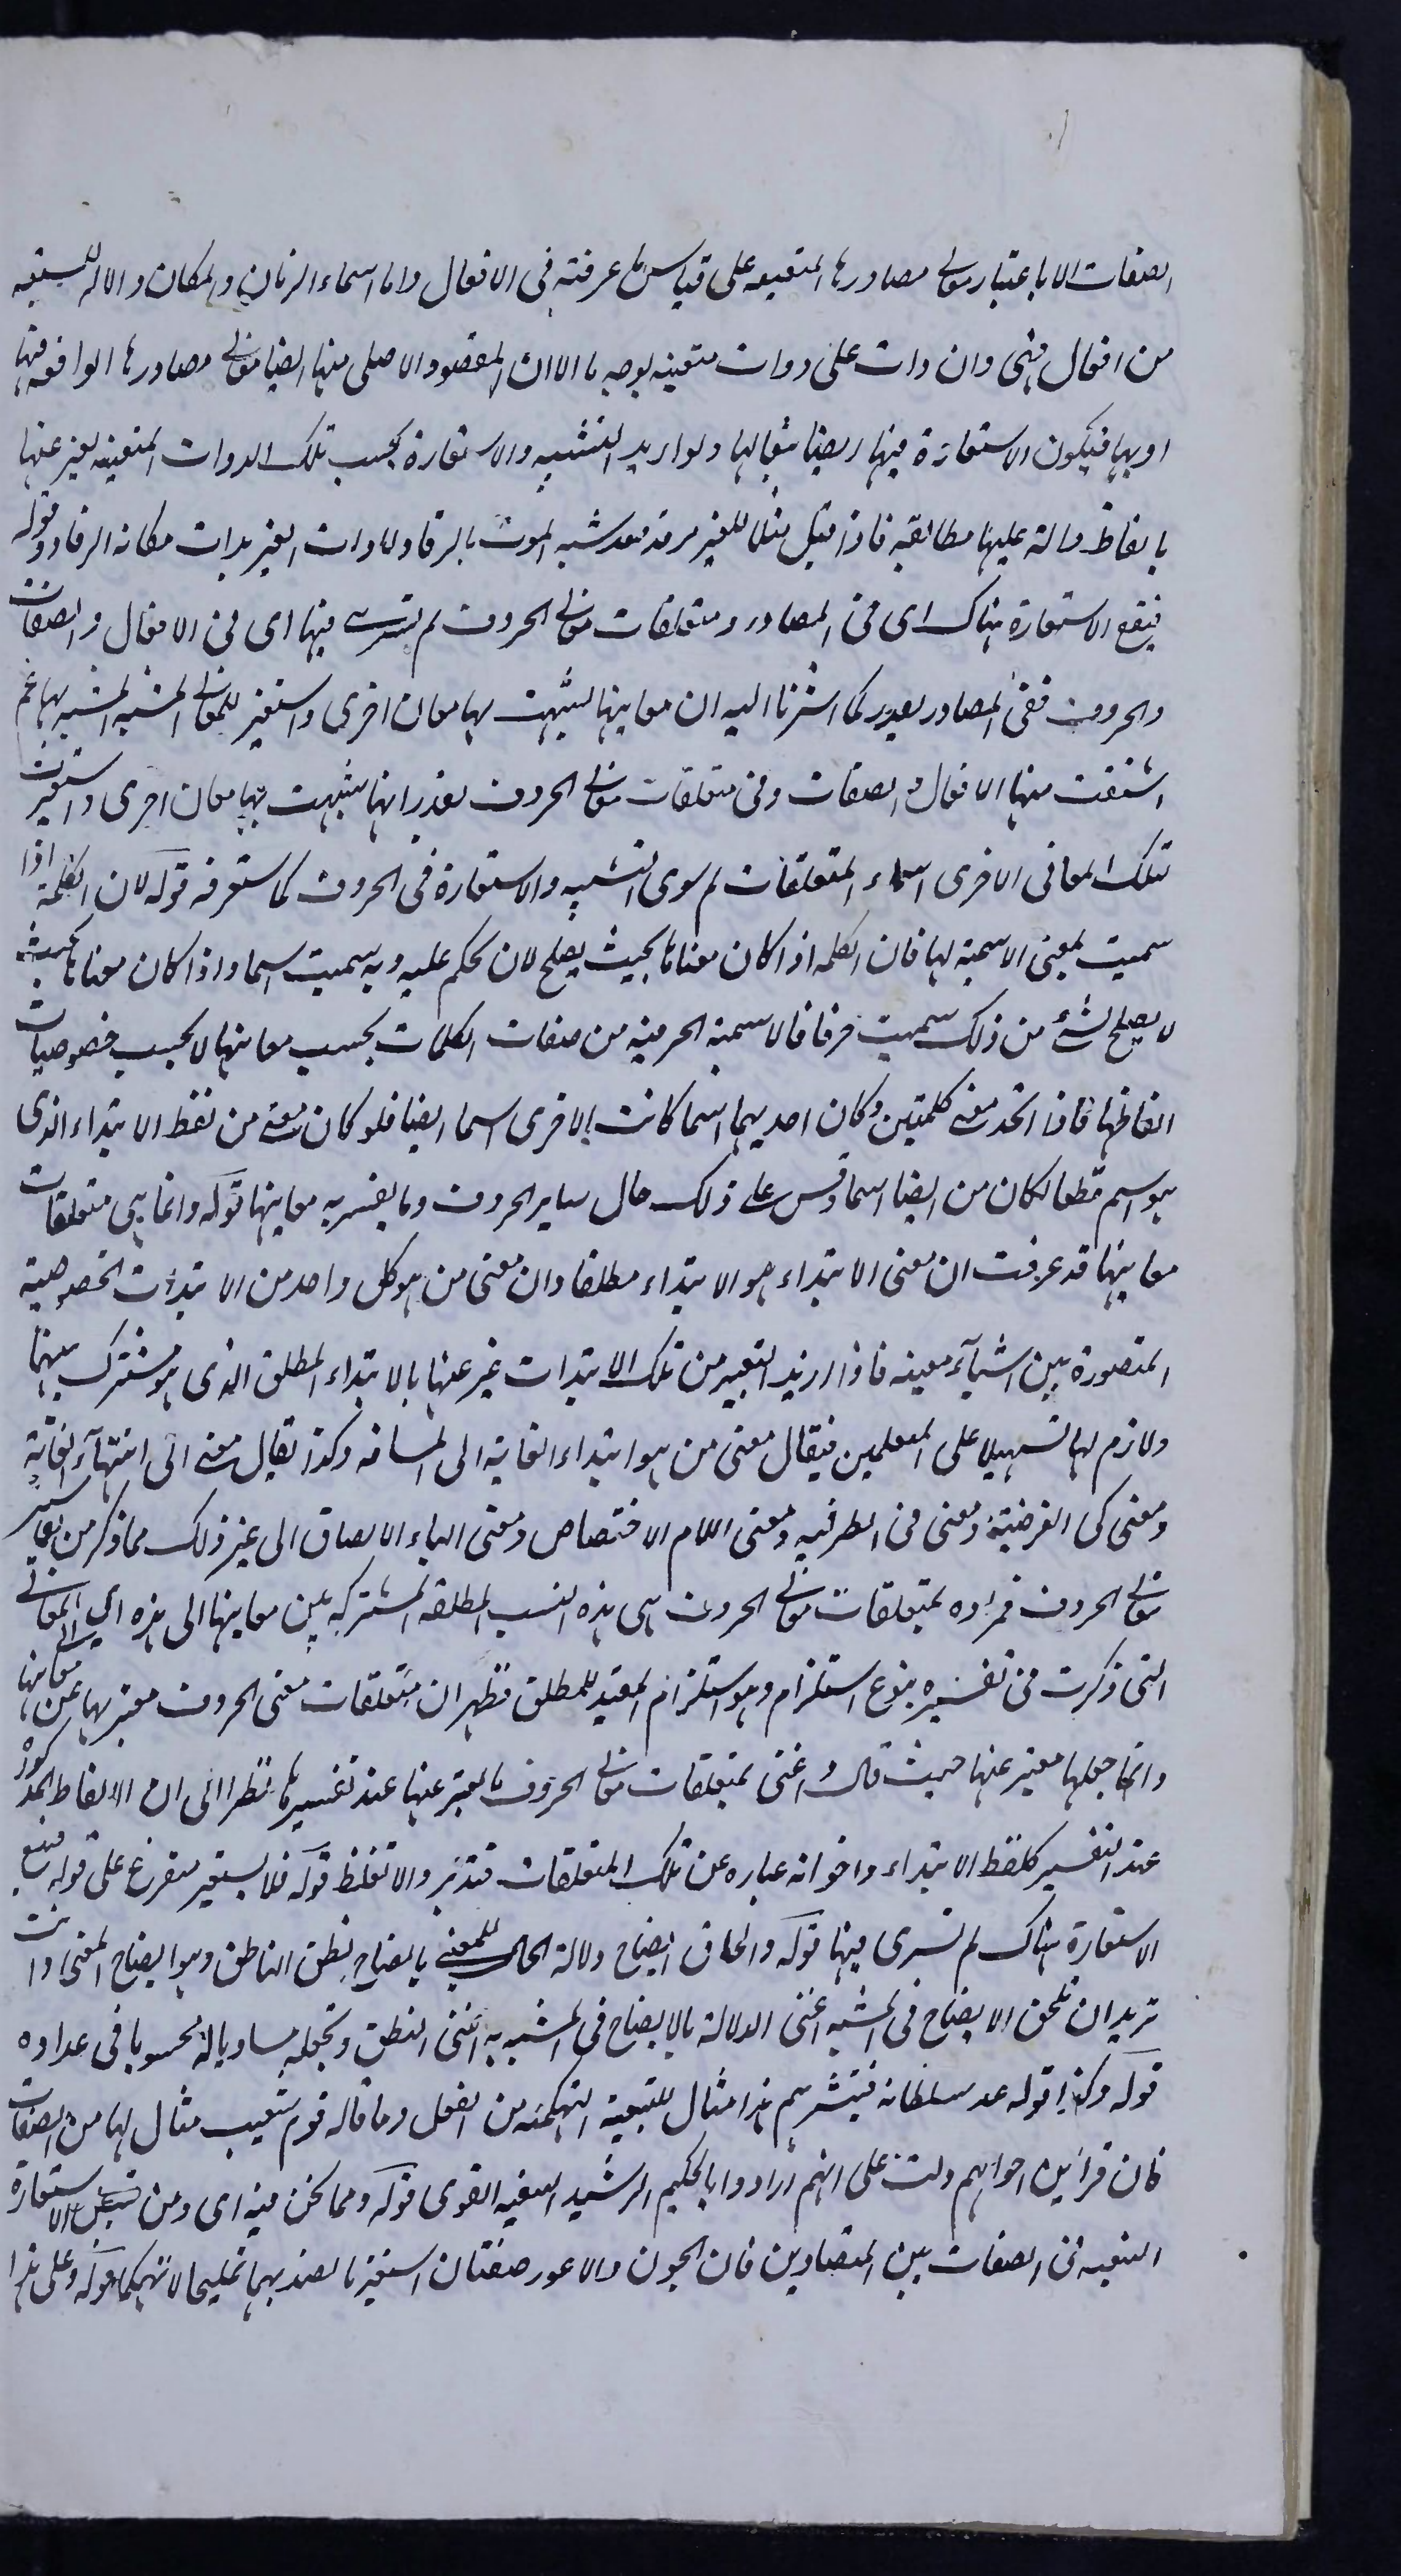 الصفات الا باعتبار معانی مصادرها المتعینه علی قیاس ما عرفته فی الافعال واما اسماء الزمان والمکان والاله المشتقه
من افعال فهی وان دلت علی ذوات متعینه بوجه ما الا ان المقصود الاصلی منها ایضا معانی مصادرها الواقعه فیها
او بها فیکون الاستعارة فیها ایضا تبعا لها ولو ارید التشبیه والاستعارة بحسب تلک الذوات المتعینه لعبر عنها
بالفاظ دالة علیها مطابقه فاذا قیل مثلا للقبر مرقد فقد شبه الموت بالرقاد ولا ذات القبر بذات مکانه الرقاد وقوله
فیقع الاستعارة هناک ای فی المصادر ومتعلقات معانی الحروف ثم یسری فیها ای فی الافعال والصفات
والحروف ففی المصادر یقدر کما اشرنا الیه ان معانیها شبهت بها معان اخری واستعیر للمعانی المشبه المشبه بها ثم
اشتقت منها الافعال والصفات وفی متعلقات معانی الحروف یقدر انها شبهت بها معان اخری واستعیرت
لتلک المعانی الاخری اسماء المتعلقات ثم سری التشبیه والاستعارة فی الحروف کما ستعرفه قوله لان الکلمة اذا
سمیت لمعنی الاسمیة لها فان الکلمه اذا کان معناها بحیث یصلح لان یحکم علیه وبه سمیت اسما واذا کان معناها بحیث
لا یصلح لشئ من ذلک سمیت حرفا فالاسمیة الحرفیه من صفات الکلمات بحسب معانیها لا بحسب خصوصیات
الفاظها فاذا اتحد معنی کلمتین وکان احدیهما اسما کانت الاخری اسما ایضا فلو کان معنی من لفظ الابتداء الذی
هو اسم قطعا لکان من ایضا اسما وقس علی ذلک حال سایر الحروف وما یفسر به معانیها قوله وانما هی متعلقات
معانیها قد عرفت ان معنی الابتداء هو الابتداء مطلقا وان معنی من هو کل واحد من الابتداءت المخصوصیة
المتصورة بین اشیآء معینه فاذا ارید التعبیر من تلک الابتدات عبر عنها بالابتداء المطلق الذی هو مشترک بینها
ولازم لها تسهیلا علی المتعلمین فیقال معنی من هو ابتداء الغایة الی المسافه وکذا یقال معنی الی انتهآء الغایة
ومعنی کی الغرضیة ومعنی فی الظرفیه ومعنی اللام الاختصاص ومعنی الباء الالصاق الی غیر ذلک مما ذکر من تفاسیر
معانی الحروف فمراده بمتعلقات معانی الحروف هی هذه النسب المطلقه المشترکه بین معانیها الی هذه ای المعانی
التی ذکرت فی تفسیره بنوع استلزام وهو استلزام المقید للمطلق فظهر ان متعلقات معنی الحروف معبر بها عن معانیها
وانما جعلها معبر عنها حیث قال واعنی بمتعلقات معانی الحروف ما یعبر عنها عند تفسیرها نظرا الی ان الالفاظ المذکورة
عند التفسیر کلفظ الابتداء واخواته عباره عن تلک المتعلقات فتدبر والا تغلط قوله فلا یستعیر متفرع علی قوله فیقع
الاستعارة هناک ثم تسری فیها قوله والحاق ایضاح دلالة الحال للمعنی بایضاح نطق الناطق وهو ایضاح المعنی وانت
ترید ان تلحق الایضاح فی المشبه اعنی الدلالة بالایضاح فی المشبه به اعنی النطق وتجعله مساویا له محسوبا فی عداده
قوله وکذا قوله عد سلطانه فبشرهم هذا مثال للتبعیة التهکمیه من الفعل وما قاله قوم شعیب مثال لها من الصفات
فان قراین احوالهم دلت علی انهم ارادوا بالحکیم الرشید السفیه الغوی قوله ومما نحن فیه ای ومن قبیل الاستعارة
التبعیه فی الصفات بین المتضادین فان الجون والاعور صفتان استعیرتا لضدیهما تملیحا لا تهکما قوله وعلی هذا